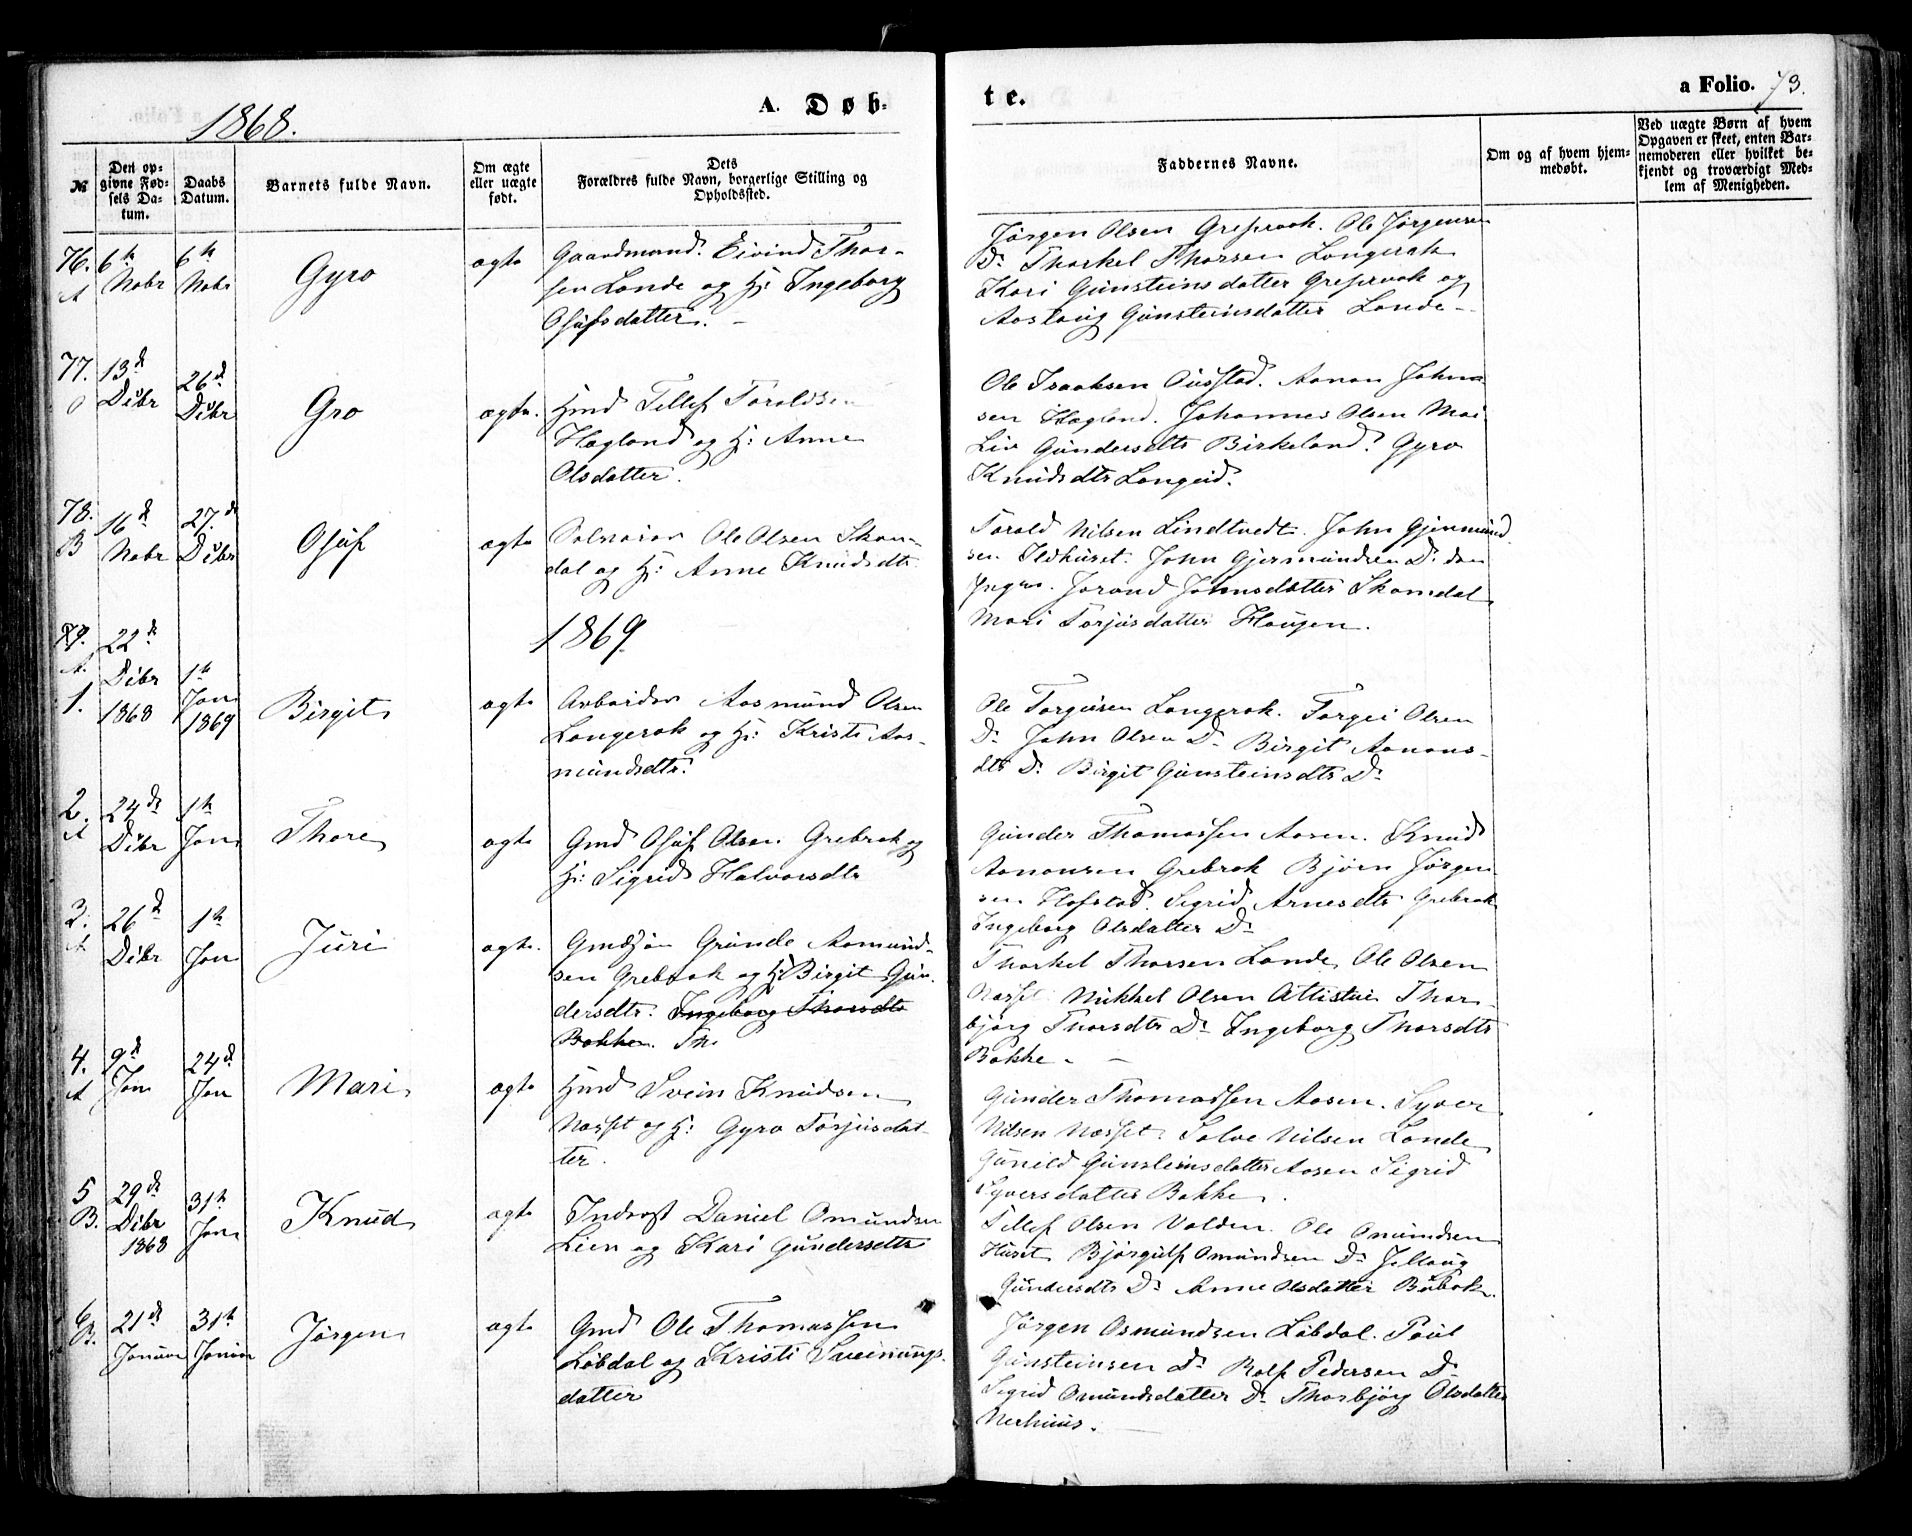 1868.
A. Døb-
te.
a Folio. 73.
№
Den opgivne Fødsels Datum.
Daabs Datum.
Barnets fulde Navn.
Om ægte eller uægte født.
Dets Forældres fulde Navn, borgerlige Stilling og Opholdssted.
Faddernes Navne.
Om og af hvem hjemmedøbt.
Ved uægte Børn af hvem Opgaven er skeet, enten Barnemoderen eller hvilket bekjendt og troværdigt Medlem af Menigheden.
76. 6te 6te
A Nobr Nobr Gyro ægte
Gaardmand. Eivind Thor-
sen Lande og H: Ingeborg
Osufsdatter. -
Jørgen Olsen Ole Jørgensen
Do Thorkel Thorsen Longerak
Kari Gunsteinsdatter og
Aaslaug Gunsteinsdatter Lande -
77. 13d 26d
Debr Debr Gro ægte.
Hmd Tellef Taraldsen
Hægland og H: Anne
Olsdatter.
Ole Isaaksen Ousstad. Aanon Johns
sen Hægland. Johannes Olsen Moi
Liv Gundersdtr Birkeland. Gyro
Knudsdtr Langeid.
78. 16d 27.de
B Nobr Debr Osuf ægte
Ole Olsen Skom-
dal og H: Anne Knudsdtr
Torald Nilsen Lindtvedt. John Gjermund
sen Ildhuset. John Gjermundsen Do den
yngre. Jorand Johnsdatter Skomdal
Mari Torjusdatter Haugen.
1869
79. 22d
A. Debr 1te
1. 1868 Jan 1869 Birgit ægte
Arbeider Aasmund Olsen
Langerak og H: Kristi Aas-
mundsdtr.
Ole Torgiusen Langerak. Torgei Olsen
Do John Olsen Do Birgit Aanons-
dtr Do Birgit Gunsteinsdtr Do
2. 24de 1te
A Debr Jan Thore ægte
Gmd Osuf Olsen Grebrok og
H: Sigrid Halvorsdtr
Gunder Thomassen Aasen. Knud
Aanonsen Grebrok Bjørn Jørgen-
sen Hofstad. Sigrid Arnesdtr Grebrok
Ingeborg Olsdatter Do
3. 26d 1te
A Debr Jan Juri ægte.
Gmdssøn Grunde Aamund-
sen Grebrok og H: Birgit Gun-
dersdtr. Ingeborg Thorsdtr
Bakken. Th
Thorkel Thorsen Lande Ole Olsen
Næsset Mikkel Olsen Attistue Thor-
bjørg Thorsdtr Do Ingeborg Thorsdtr
Bakke. -
4. 9d 24d.
A Jan Jan Mari ægte
Hmd Svein Knudsen
Næsset og H: Gyro Torjusdat-
ter.
Gunder Thomassen Aasen. Syver
Nilsen Næsset. Salve Nilsen Lande
Gunild Gunsteinsdatter Aasen Sigrid
Syversdatter Bakke.
5 29de 31te
B. Debr 1868 Jan Knud ægte
Inderst Daniel Omundsen
Lien og Kari Gundersdtr
Tellef Olsen Valden. Ole Omundsen
Huset Bjørgulf Omundsen Do Jellaug
Gundersdtr Do Anne Olsdatter Bubak.
6 21de 31te
B. Januar Januar Jørgen ægte
Gmd Ole Thomassen
Løbdal og Kristi Sveinungs-
datter
Jørgen Osmundsen Løbdal. Paul
Gunsteinsen Do Rolf Pedersen Do
Sigrid Omundsdatter Do Thorbjørg Olsdatter
Nerhuus.